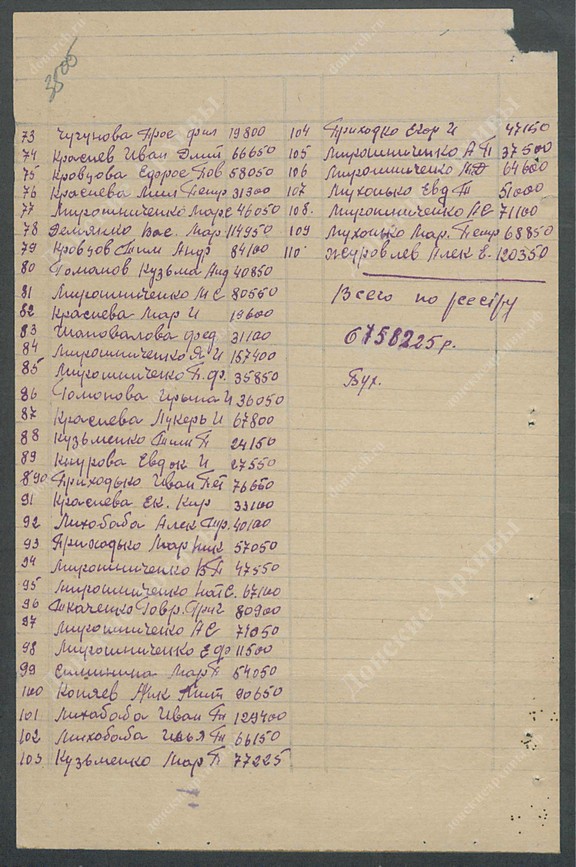 3505
73 Чугунова Прос фил 19800
74 Краснев Иван Дмит 66650
75 Кровцова Едорос Пов 58050
76 Краснева Мил Петр 31300
77 Мирошниченко Марс 46050
78 Демянко Вас. Мар 114950
79 Кровцов Тим Андр 84100
80 Томанов Кузьма Анд 40850
81 Мирошниченко М С 80550
82 Краснева Мар И 19600
83 Шаповалова фед 31100
84 Мирошниченко Я И 157400
85 Мирошниченко П. ф. 35850
86 Томонова Ирына И 36050
87 Краснева Лукерь И 67800
88 Кузьменко Тим П 24150
89 Кнурова Евдок И 27550
890 Приходько Иван Пет 76650
91 Краснева Ек. Кир 33100
92 Лихобаба Алек Пр. 40100
93 Приходько Мар Ник 57050
94 Мирошниченко В П 47550
95 Мирошниченко Нат С. 67100
96 Ткаченко Говр. Григ 80900
97 Мирошниченко А С 71050
98 Мирошниченко Е фо 11500
99 Симинина Мар П 54050
100 Копяев Мит 90650
101 Лихобаба Иван Т 129400
102 Лихобаба Илья Т 66150
103 Кузьменко Мар П 77225
104 Приходко Егор И 47150
105 Мирошниченко А П 37500
106 Мирошниченко М Д 64600
107 Мухонько Евд Т 51000
108. Мирошниченко А С 71100
109 Мухонько Мар. Петр 68850
110 Журовлев Алек Е. 120350
Всего по реестру
6758225 р.
Бух.